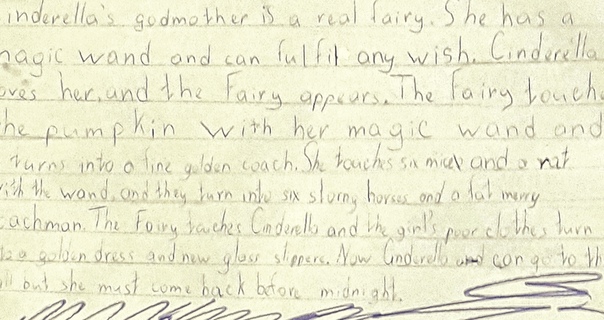 inderella's godmother is a real fairy. She has a
nagic wand and can fulfil any wish. Cinderella
oves her, and the Fairy appears. The Fairy touch
he pumpkin with her magic wand and
turns into a fine golden coach. She touches six mice and a rat
ith the wand, and they turn into six horses and a fat merry
achman. The Fairy touches Cinderella and the girl's poor clothes turn
to a golden dress and new glass slippers. Now Cinderella and can go to th
ll but she must come back before midnight.